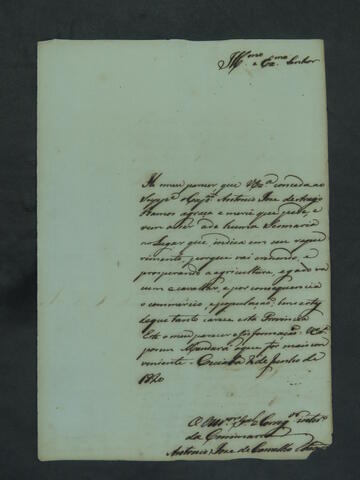 Ill.mo e Ex.mo Senhor
He meu parecer, que V. Ex.a conceda ao
Supp.e o Cap.m Antonio Jose de Araujo
Ramos a graça e mercê que pede, e
vem a ser a de huma Sesmaria
no lugar que indica em seu reque
rimento, porque vai crescendo, e
prosperando a agricultura, o gado va
cum e cavallar, e por consequencia
o commercio, e população; bens estes
de que tanto carece esta Provincia
Este o meu parecer e informação. V. Ex.a
porem Mandará o que for mais con
veniente. de Junho de
1820
O
da Commarca
Antonio Jose de Carvalho